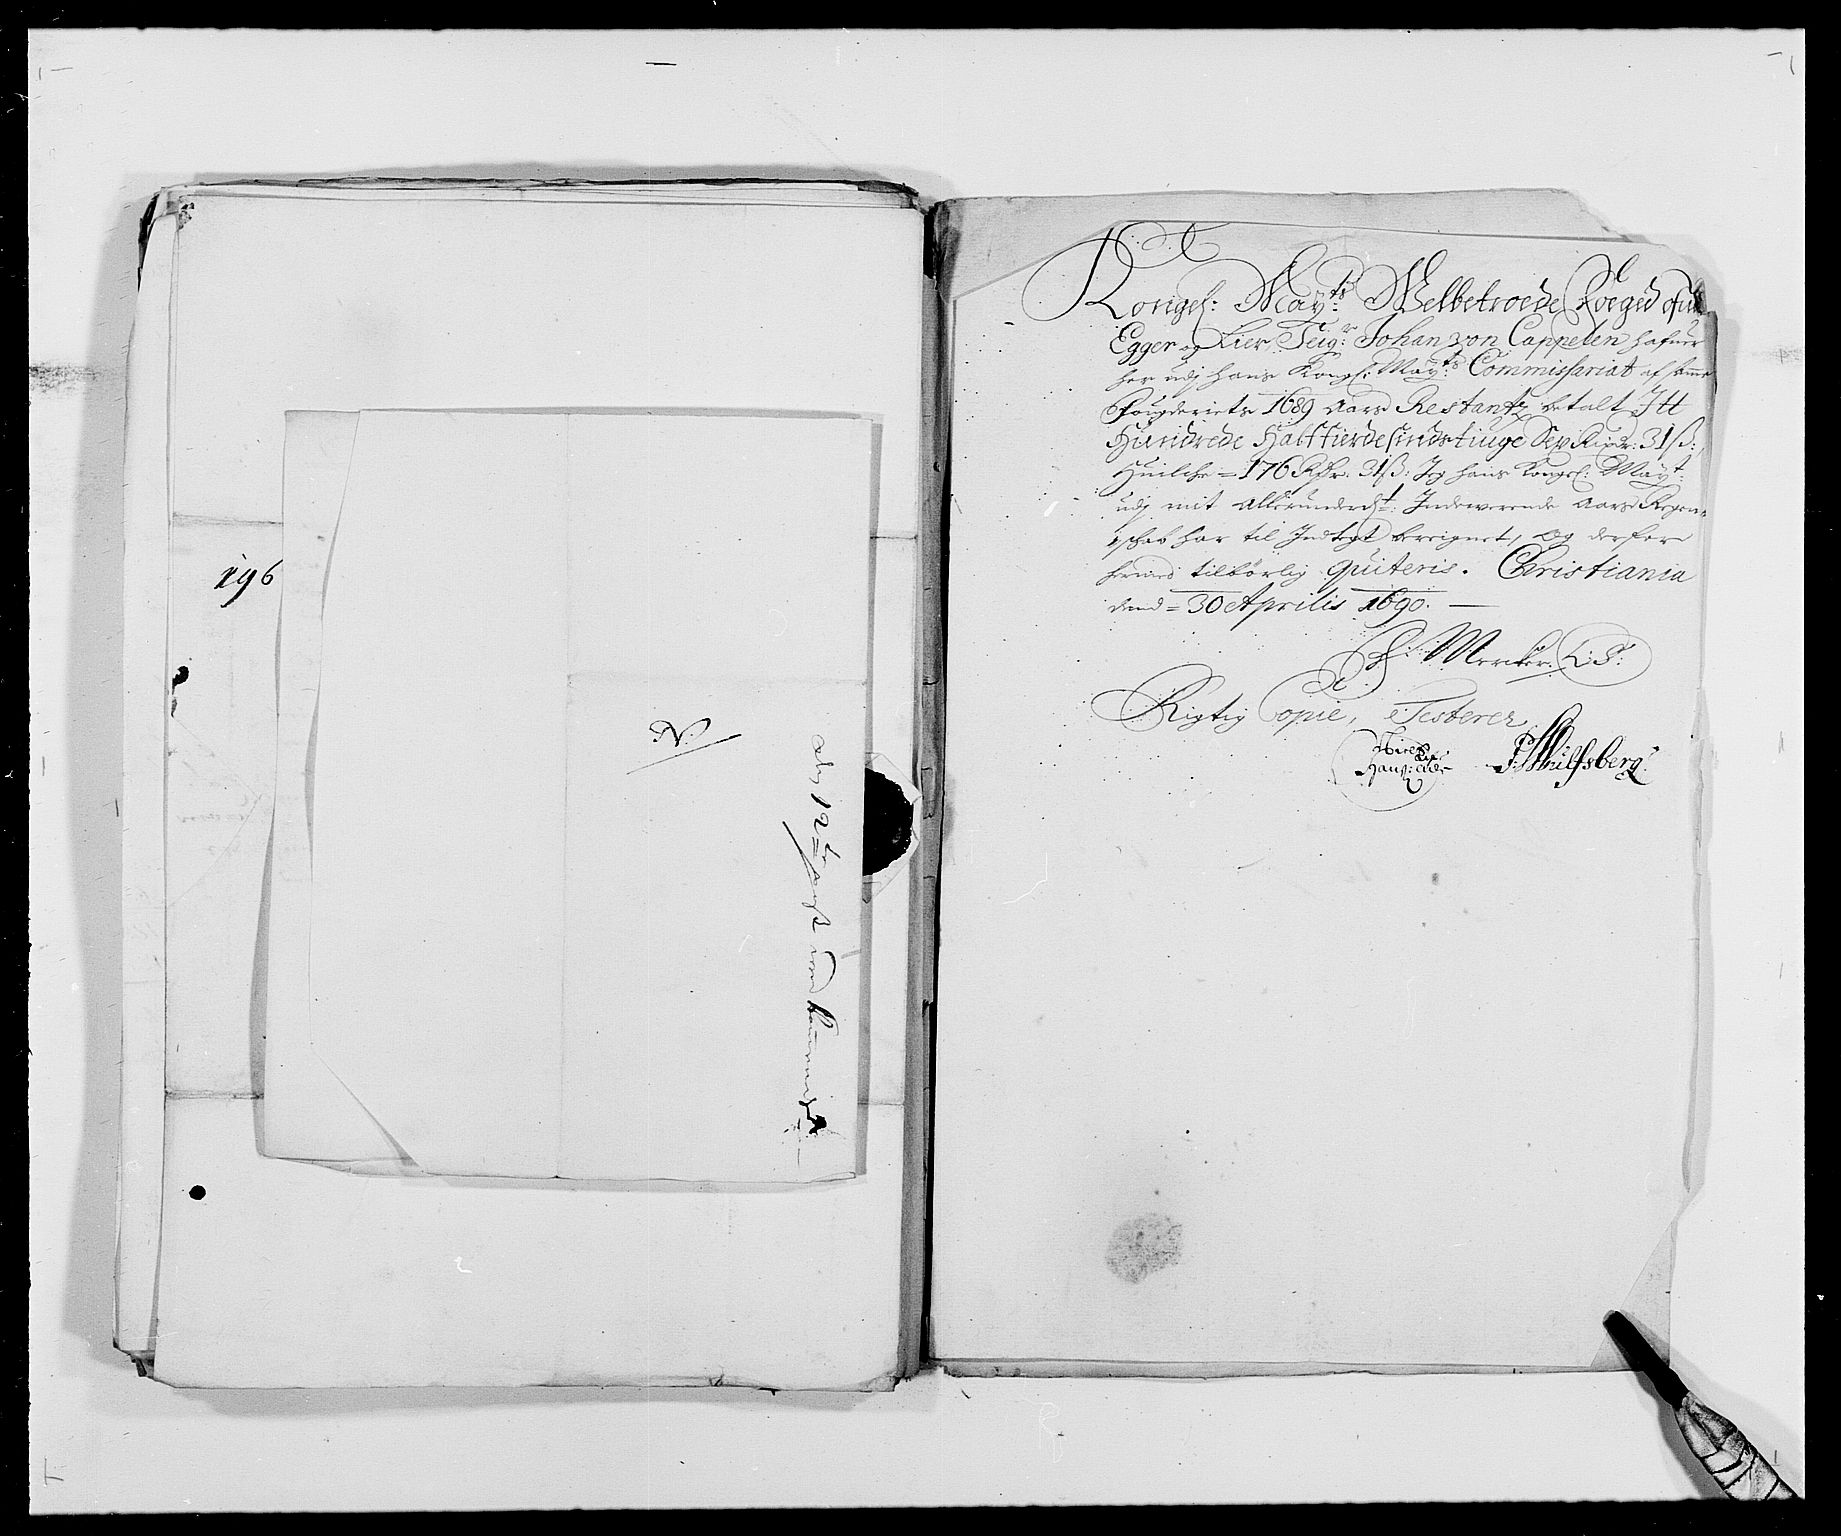 196
N:
Kongel: Maÿts Welbetroede Foeged ofuer
Egger og Lier, Seigr: Johan von Cappelen hafuer
her udj Hans Kongl: Maÿts Commissariat af samme
Fougderiets 1689 Aars Restantz betalt Itt
Hundrede Halffierdesindstiuge Sex Rixdr: 31 ß:,
Huilche = 176 Rdr. 31 ß: Jeg hans Kongel: Maÿt:
udj mit allerunderdt: Indewerende Aars Regen-
schab har til Indtegt bereignet, Og derfore
herved tilbörlig quiteris. Christiania
dend = 30 Aprilis 1690.
H: Mercker. L: S:
Rigtig Copie, Testerer
Niels
Hans:
P: Wulfsberg